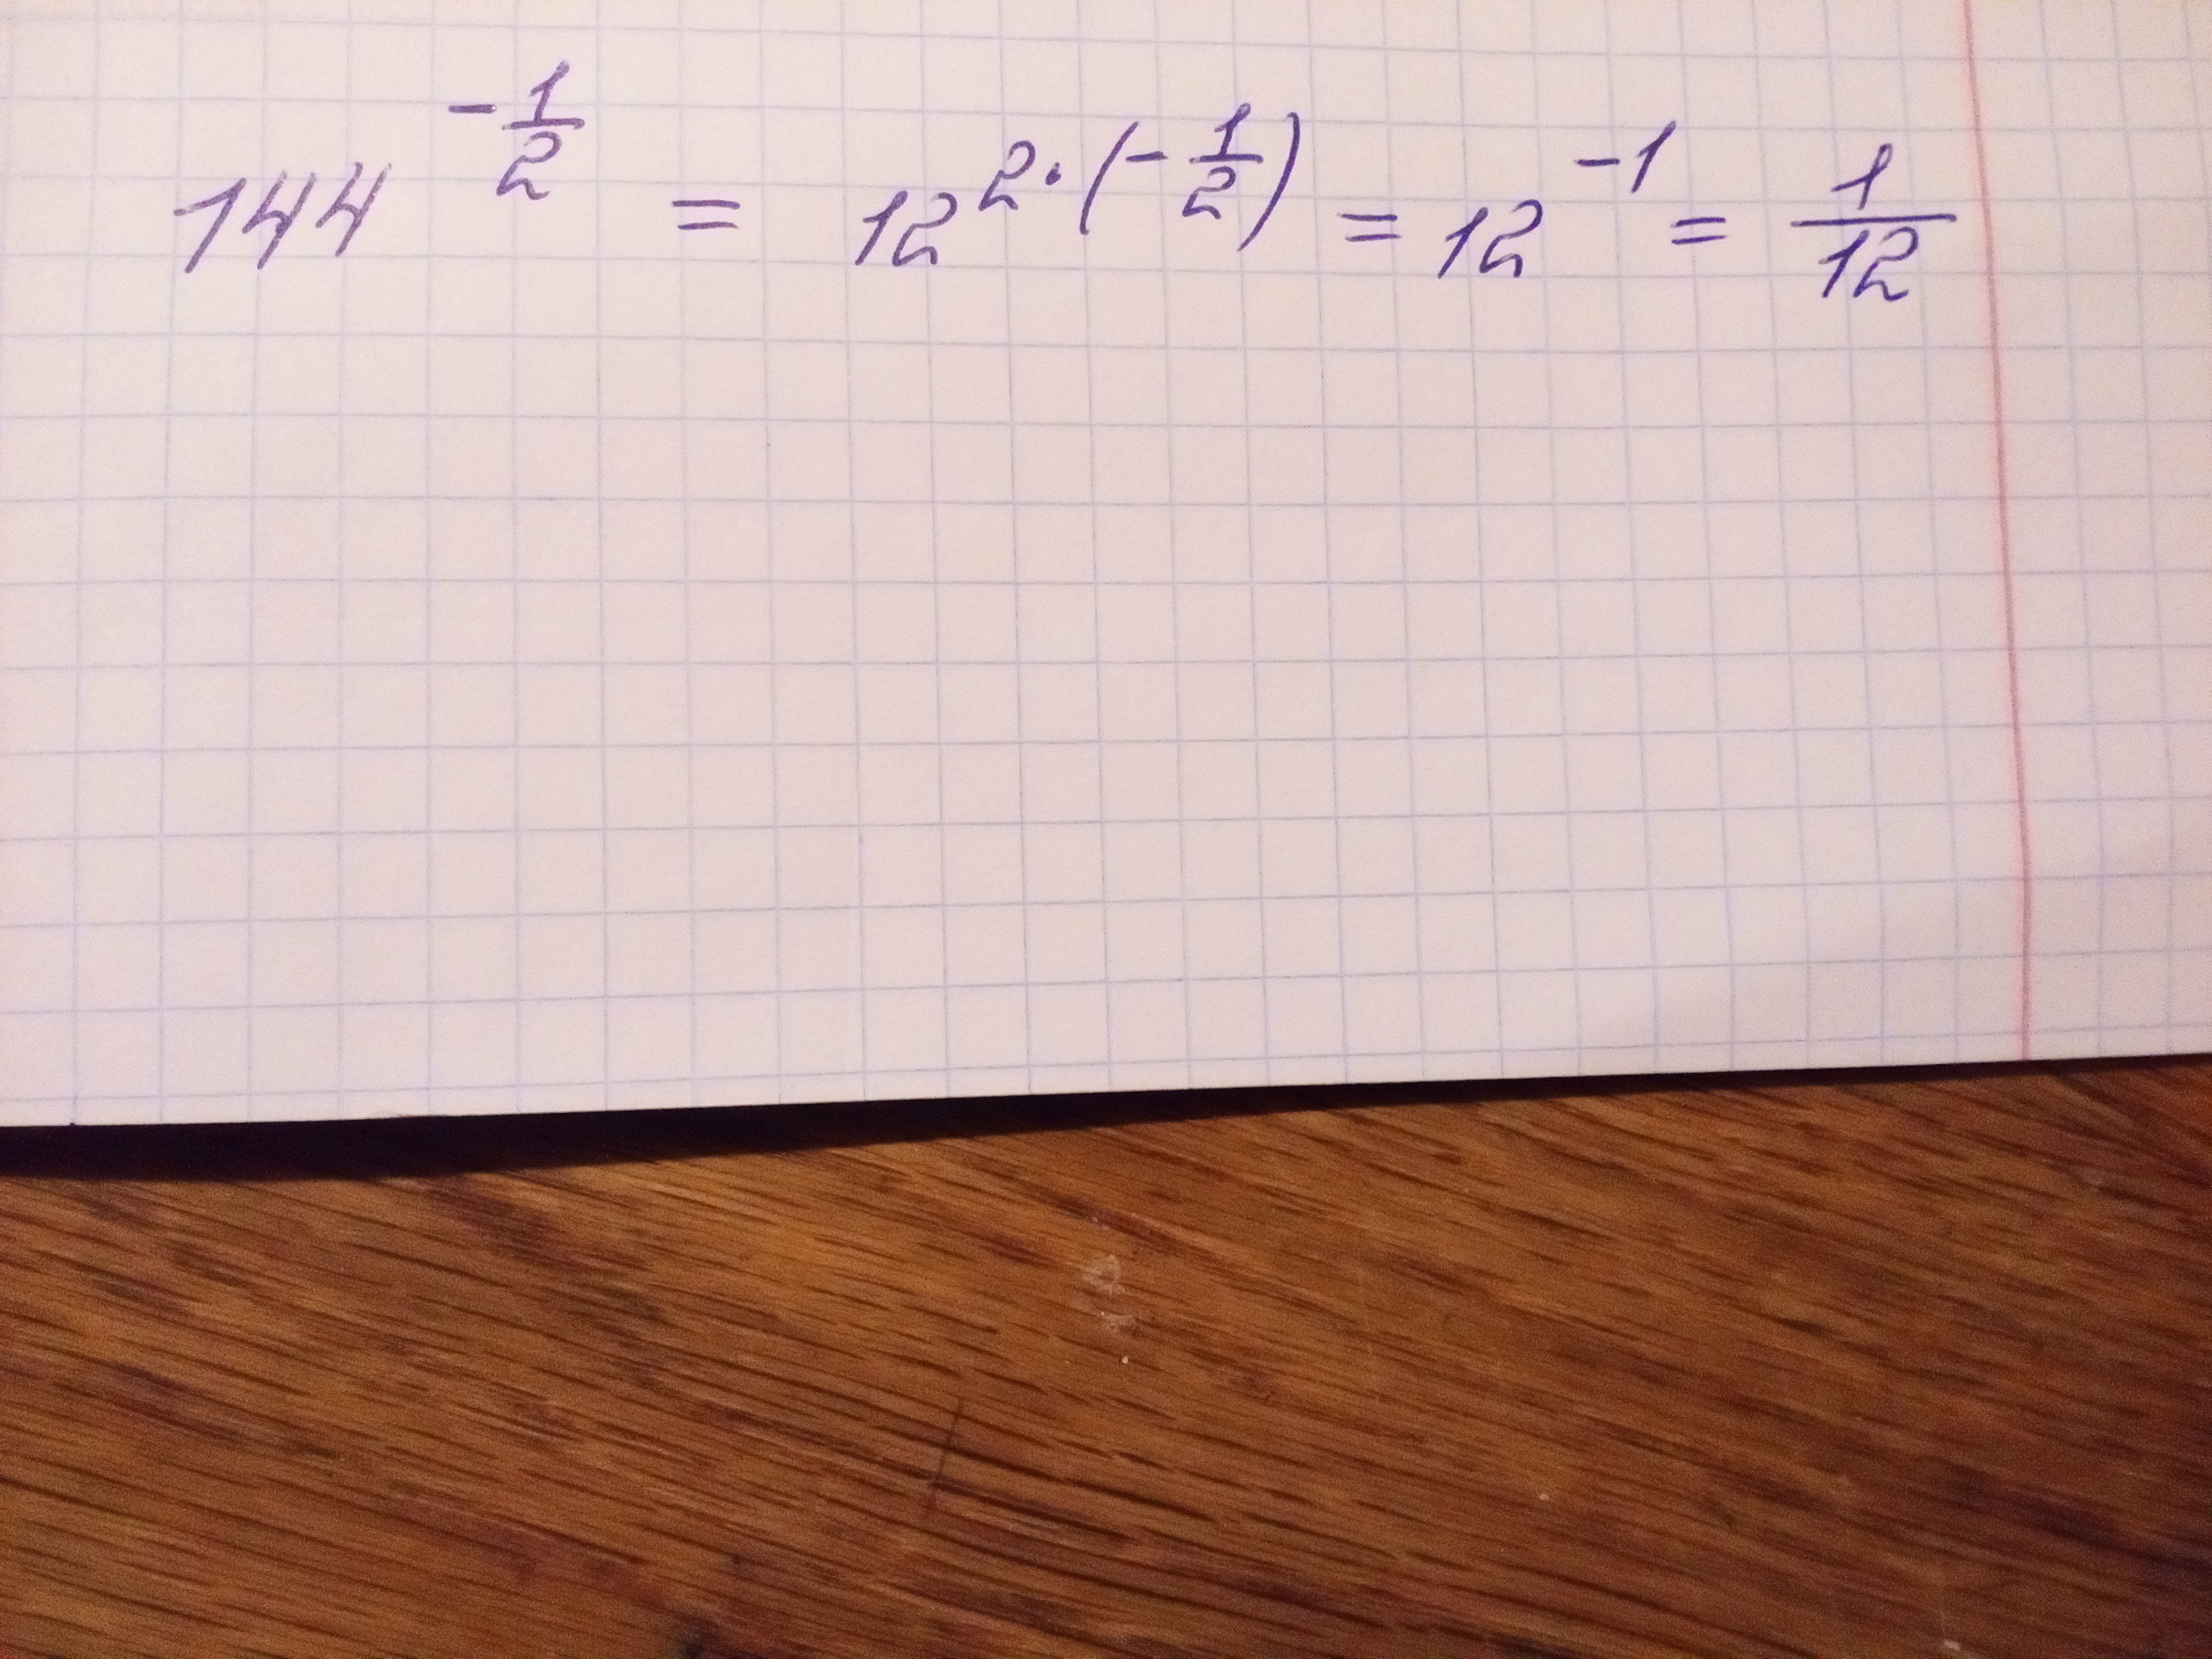 144^{-\frac{1}{2}} = 12^{2·(-\frac{1}{2})} = 12^{-1} = \frac{1}{12}